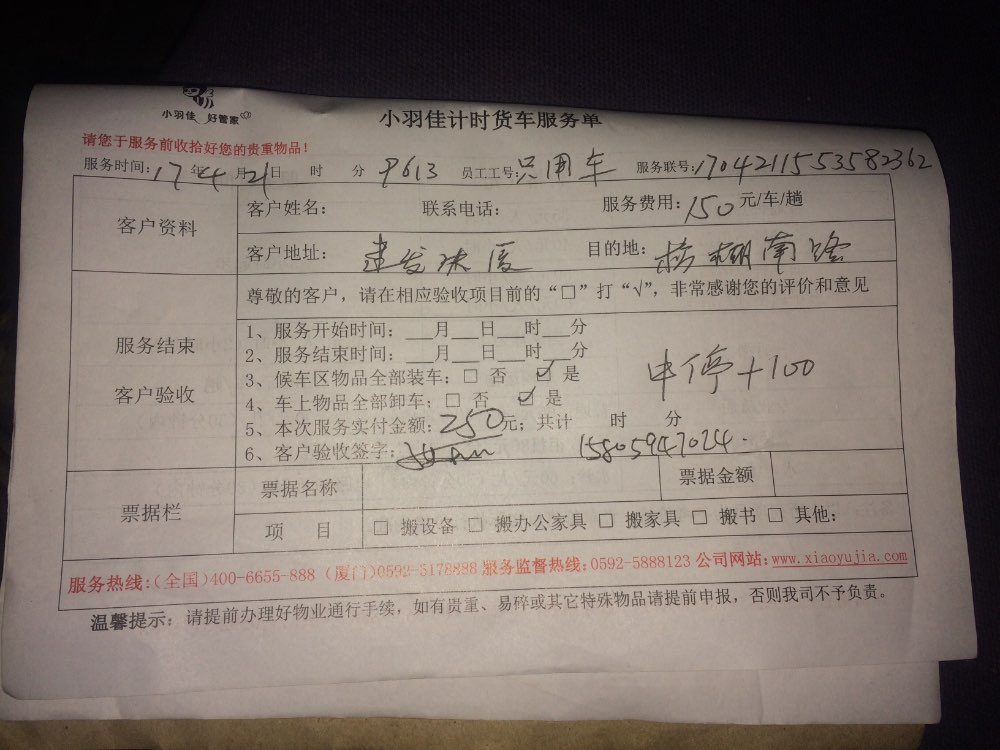 小羽佳 好管家
小羽佳计时货车服务单
请您于服务前收拾好您的贵重物品！
服务时间：17年4月21日 时 分 P613 员工工号：只用车 服务联号：1704211553582362
客户资料
客户姓名： 联系电话： 服务费用：150元/车/趟
客户地址：建发珠厦 目的地：槟榔南路
尊敬的客户，请在相应验收项目前的“□”打“√”，非常感谢您的评价和意见
服务结束
客户验收
1、服务开始时间：___月___日___时___分
2、服务结束时间：___月___日___时___分
3、候车区物品全部装车：□ 否 ☑ 是
4、车上物品全部卸车：□ 否 ☑ 是
中停+100
5、本次服务实付金额：250元；共计 时 分
6、客户验收签字： 15805947024.
票据栏
票据名称 票据金额
项 目 □ 搬设备 □ 搬办公家具 □ 搬家具 □ 搬书 □ 其他：
服务热线：（全国）400-6655-888（厦门）0592-5178888 服务监督热线：0592-5888123 公司网站：www.xiaoyujia.com
温馨提示：请提前办理好物业通行手续，如有贵重、易碎或其它特殊物品请提前申报，否则我司不予负责。